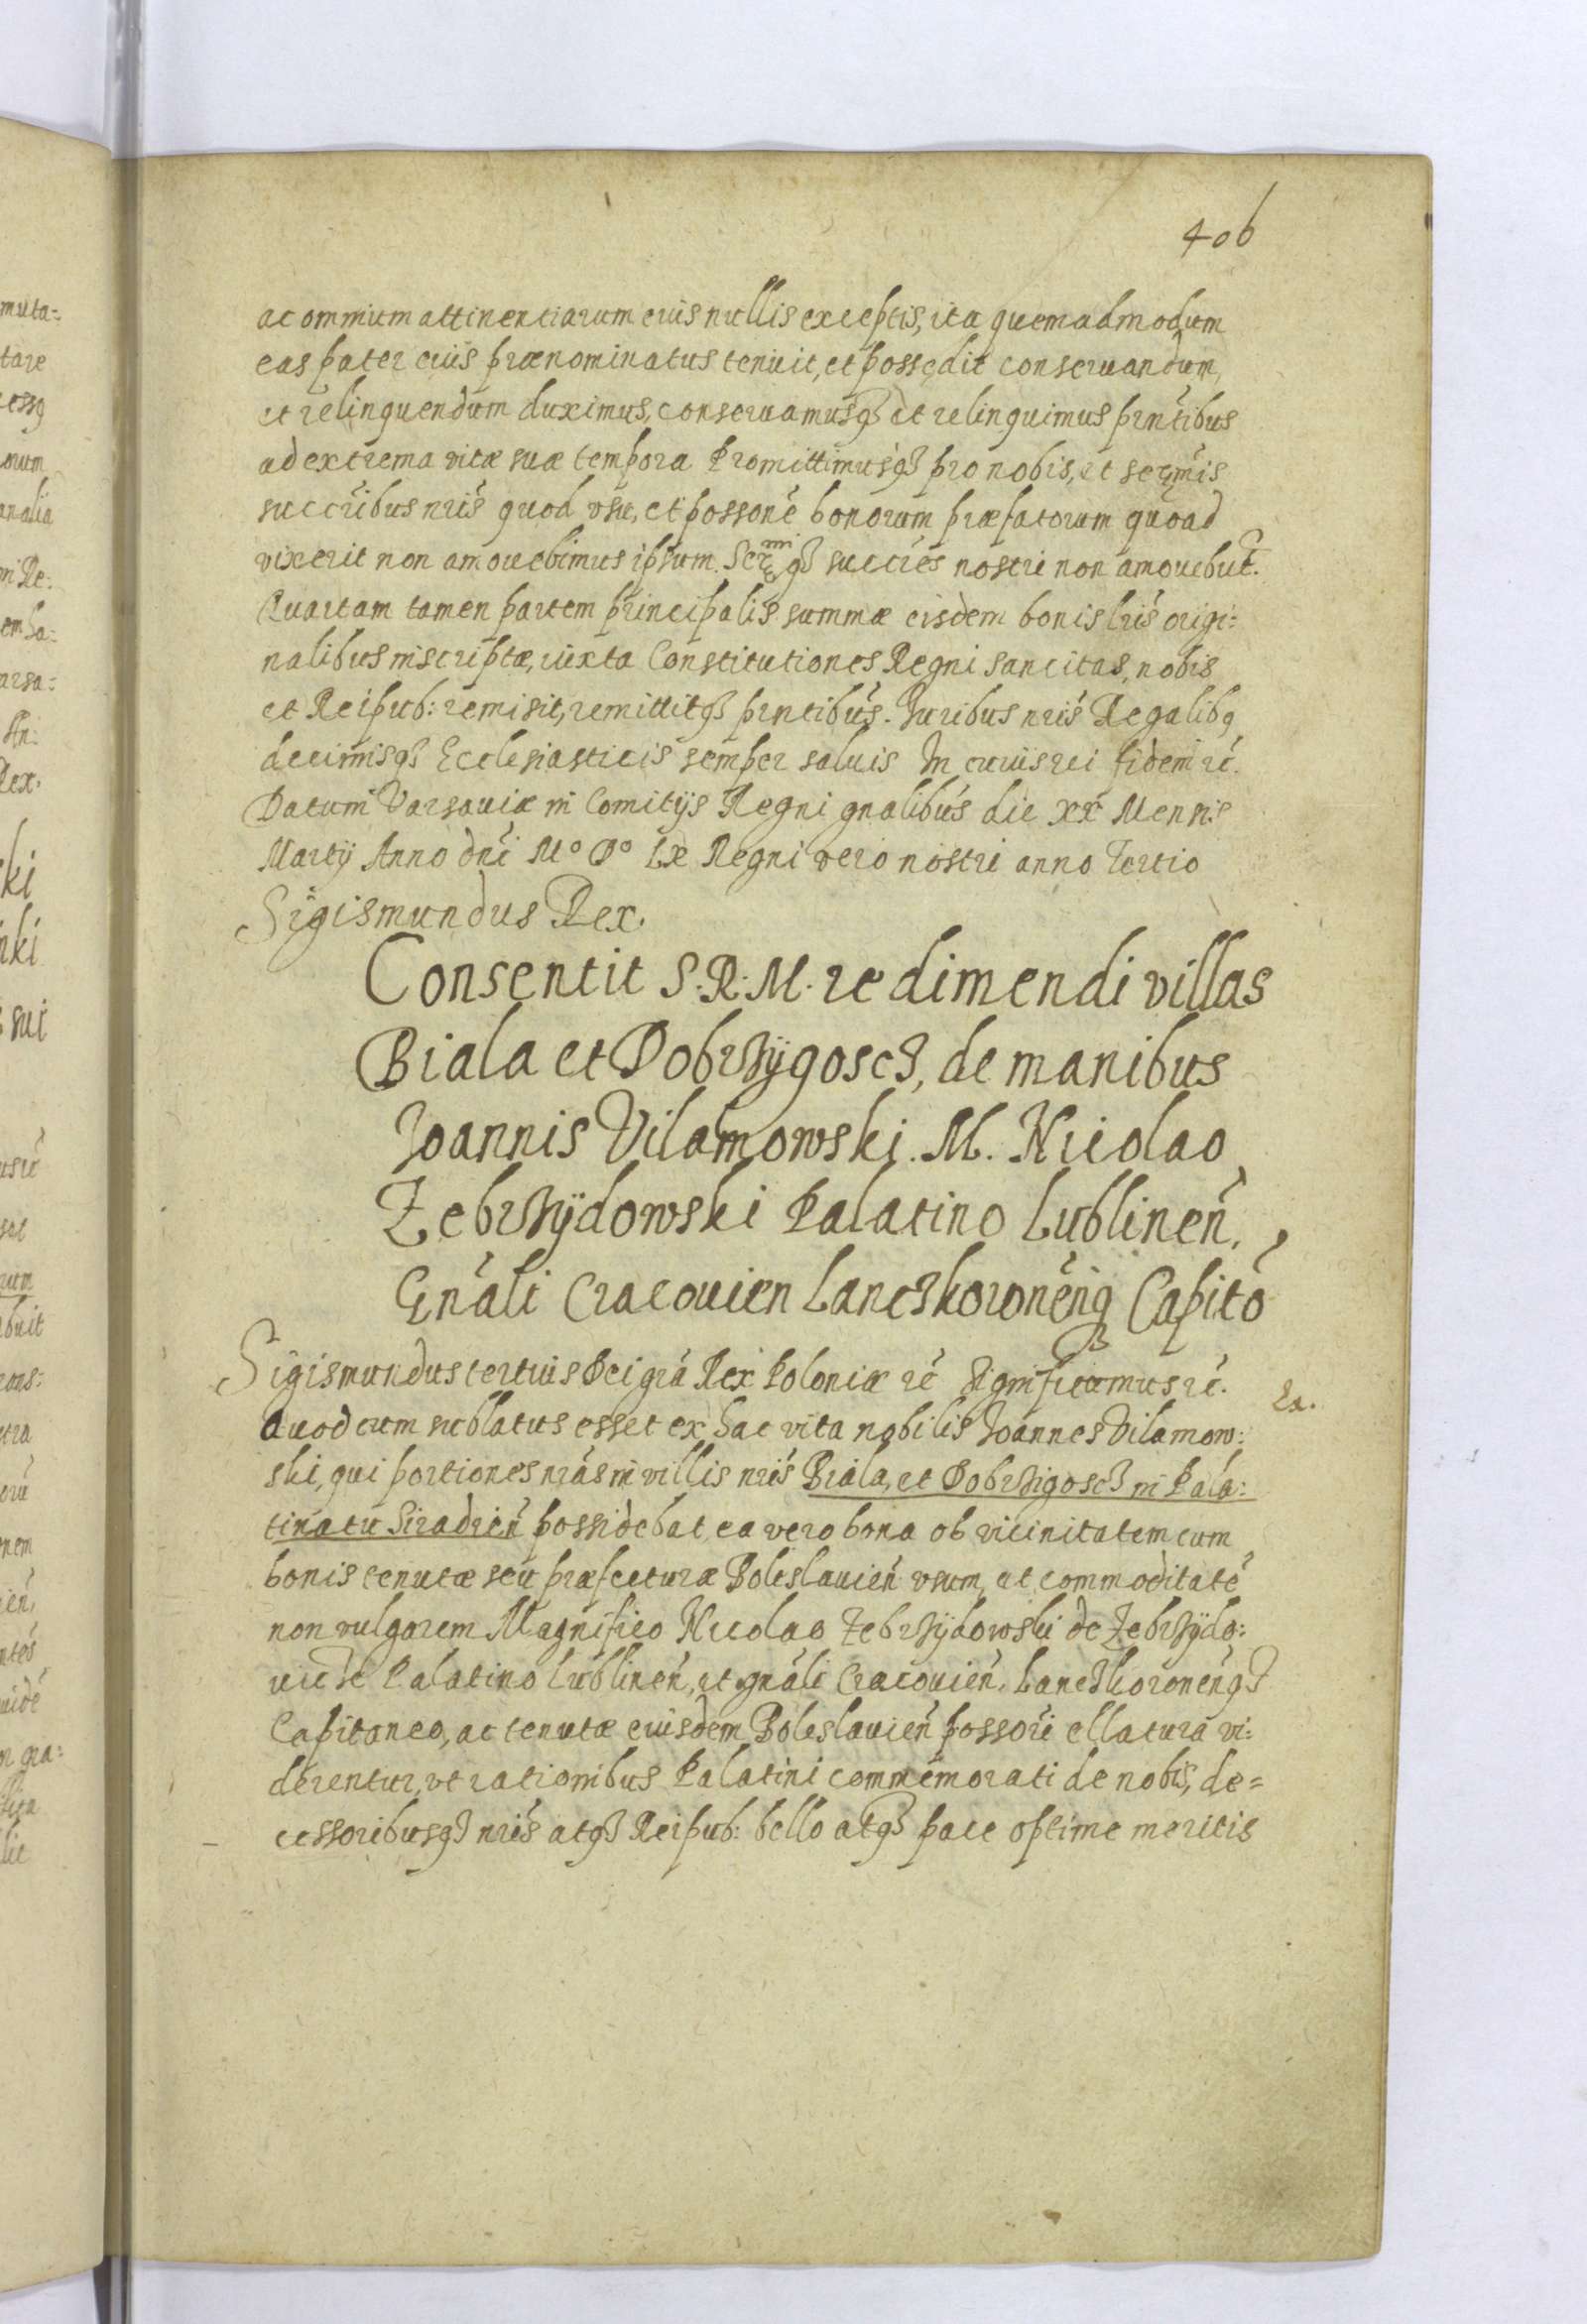 406
ac omnium attinentiarum eius nullis exceptis, ita quemadmodum
eas pater eius prænominatus tenuit, et possedit conseruandum,
et relinquendum duximus, conseruamusq3 et relinquimus prntibus
ad extrema vitæ suæ tempora Promittimusq3 pro nobis, et sermis
succribus nris quod vsu, et possone bonorum præfatorum quoad
vixerit non amouebimus ipsum. Sermiq3 succres nostri non amouebut.
Quartam tamen partem principalis summæ eisdem bonis lris origi:
nalibus inscriptæ, iuxta Constitutiones Regni sancitas, nobis
et Reipub: remisit, remittitq3 prntibus. Iuribus nris Regalibq
decimisq3 Ecclesiasticis semper saluis In cuius rei fidem rc.
Datum Varsauiæ in Comitijs Regni gnalibus die xx Mensis
Martij Anno dni Mo Do Lx Regni vero nostri anno Tertio
Sigismundus Rex.
Consentit S.R.M. redimendi villas
Biala et Dobrzÿgosc3, de manibus
Ioannis Vilamowski. M. Nicolao
Zebrzÿdowski Palatino Lublinen,
Gnali Cracouien Lanc3koronenq3 Capito
Sigismundus tertius Dei gra Rex Poloniæ rc Significamus rc.
Ex.
Quod cum sublatus esset ex hac vita nobilis Ioannes Vilamow:
ski, qui portiones nras in villis nris Biala, et Dobrzigosc3 in Pala:
tinatu Siradien possidebat, ea vero bona ob vicinitatem cum
bonis tenutæ seu præfecturæ Boleslauien vsum, et commoditate
non vulgarem Magnifico Nicolao Zebrzÿdowski de Zebrzÿdo:
uice Palatino Lublinen, et gnali Cracouien, Lanc3koronenq3
Capitaneo, ac tenutæ eiusdem Boleslauien possori ellatura vi:
derentur, vt rationibus Palatini commemorati de nobis, de=
cessoribusq3 nris atq3 Reipub: bello atq3 pace optime meritis